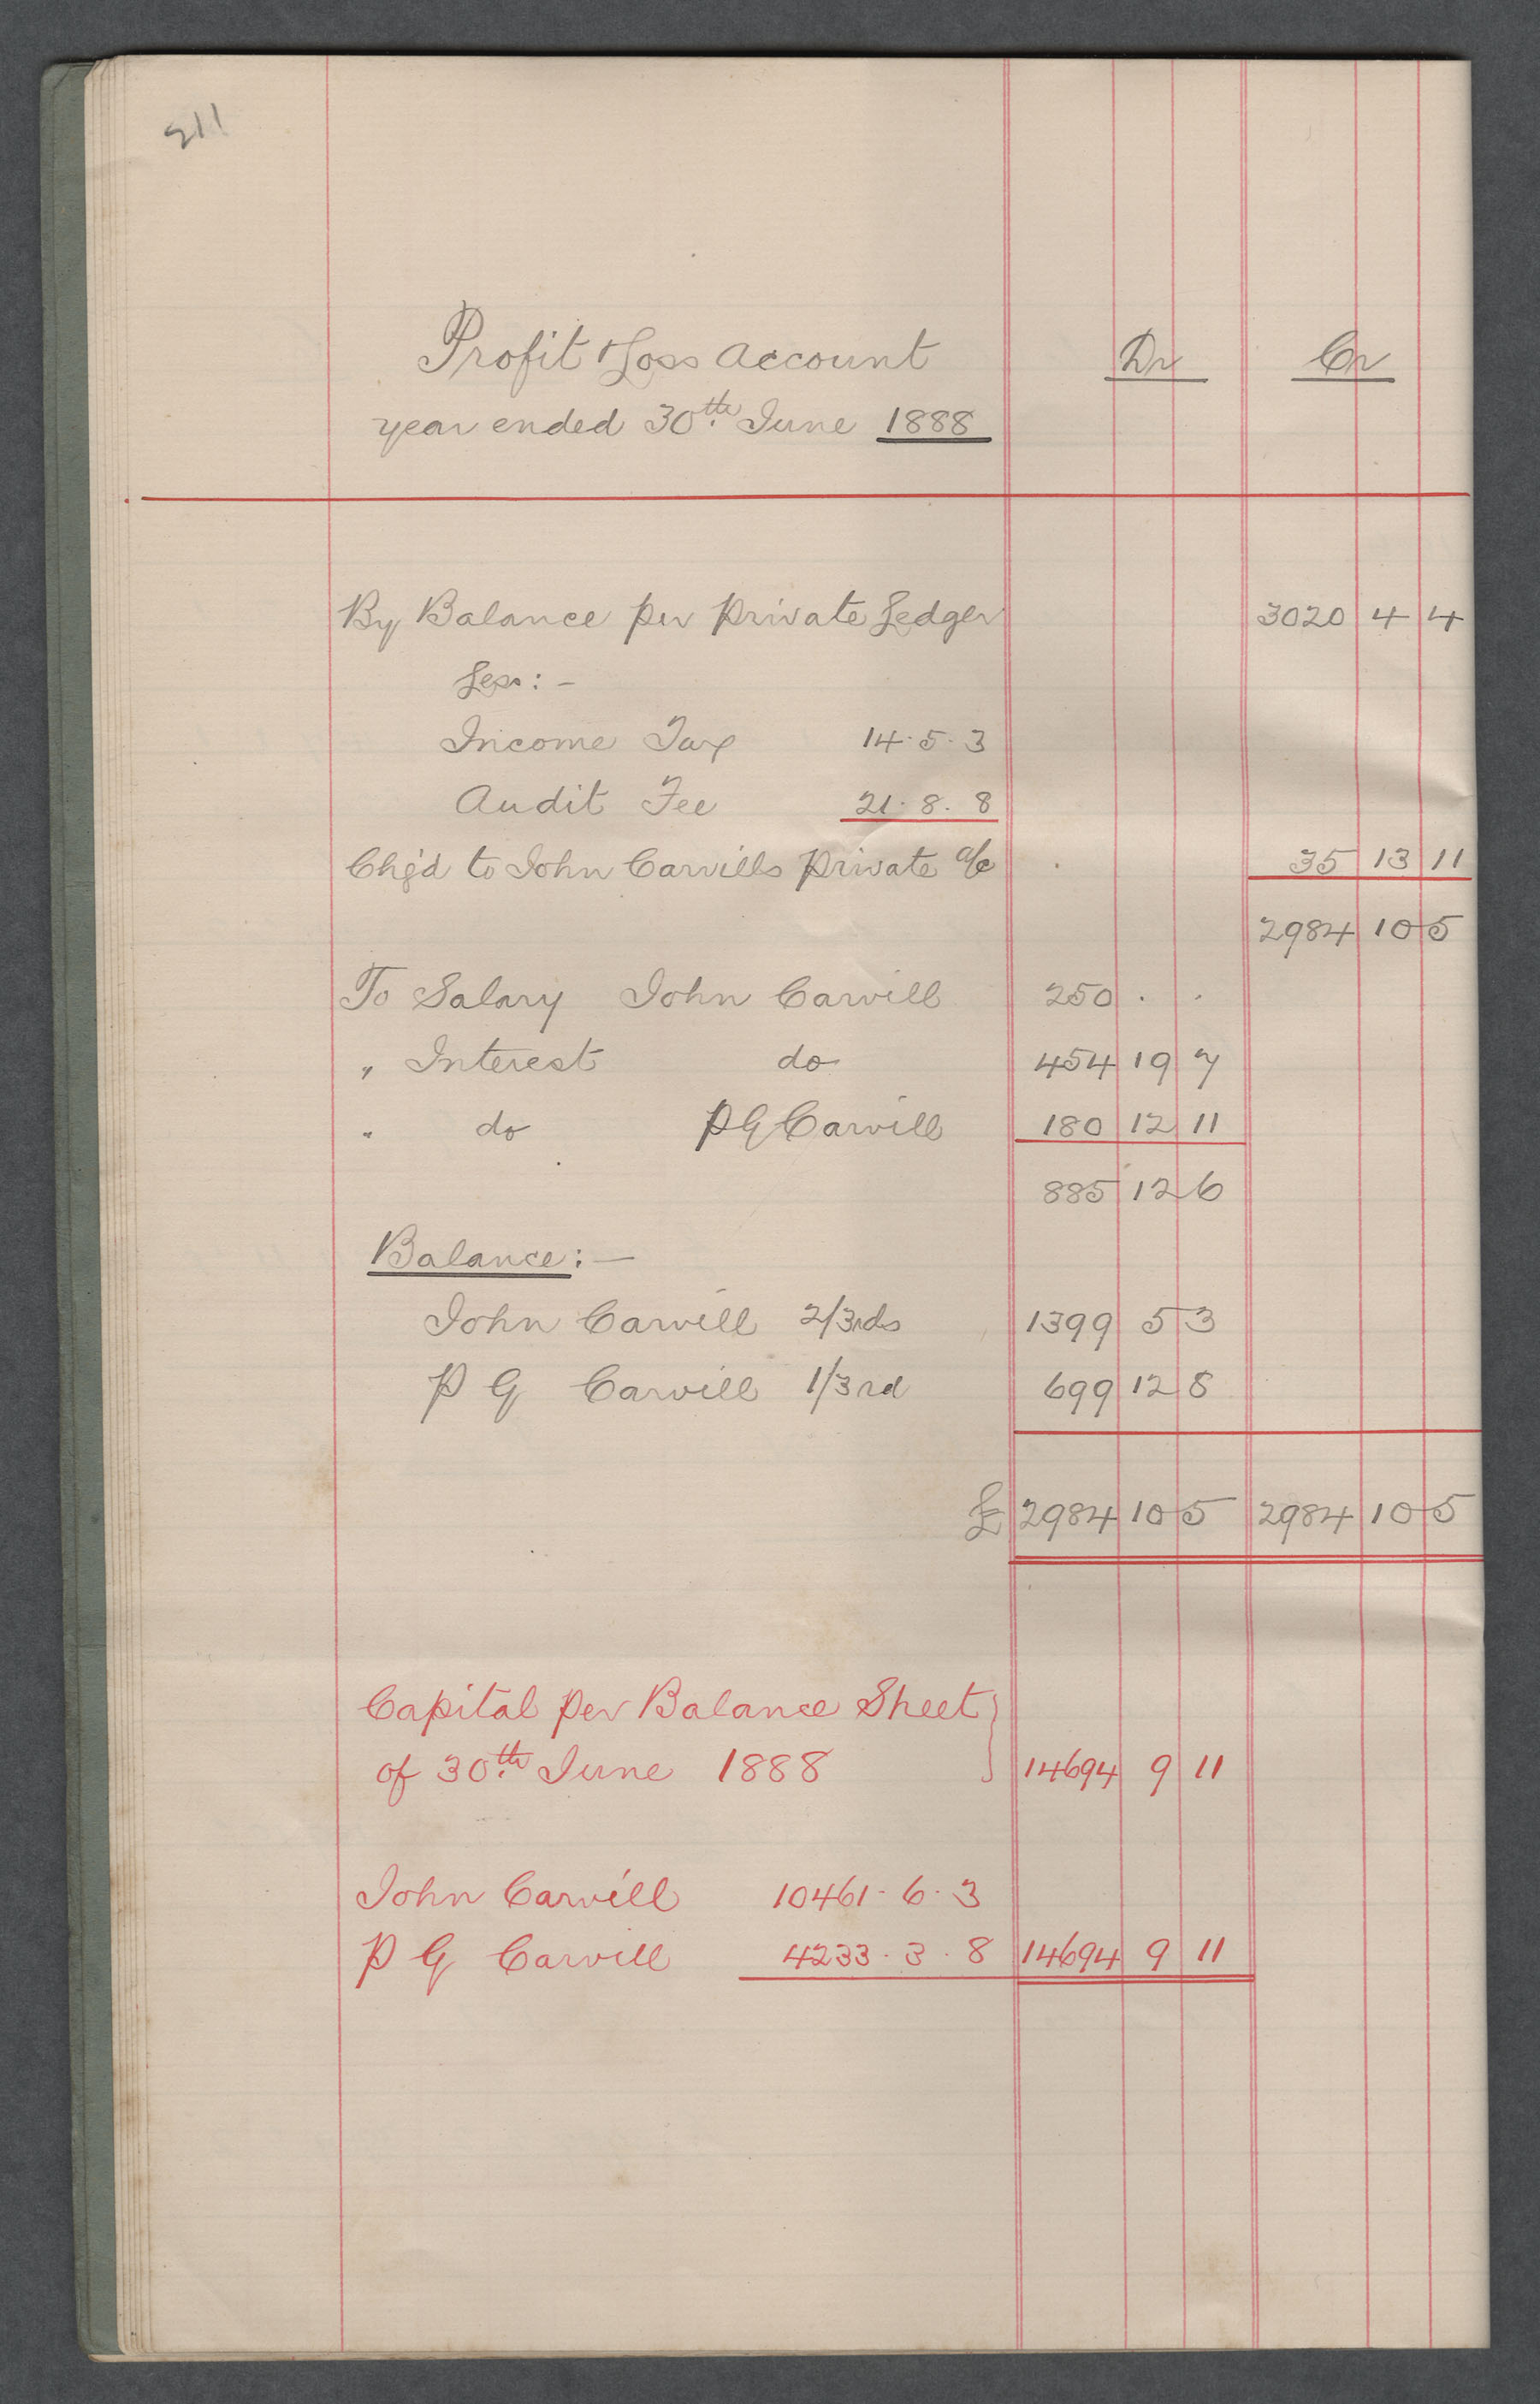 211
Profit & Loss Account Dr Cr
year ended 30th June 1888
By Balance per Private Ledger 3020 4 4
Less:-
Income Tax 14.5.3
Audit Fee 21.8.8
Chg'd to John Carvills Private a/c 35 13 11
2984 10 5
To Salary John Carvill 250 . .
" Interest do 454 19 7
" do P G Carvill 180 12 11
885 12 6
Balance:-
John Carvill 2/3rds 1399 5 3
P G Carvill 1/3rd 699 12 8
£ 2984 10 5 2984 10 5
Capital per Balance Sheet
of 30th June 1888 14694 9 11
John Carvill 10461.6.3
P G Carvill 4233.3.8 14694 9 11